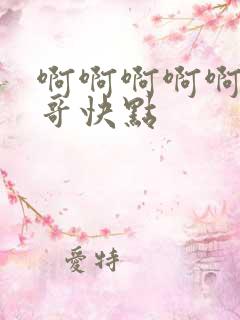 啊啊啊啊啊
哥快點
愛特